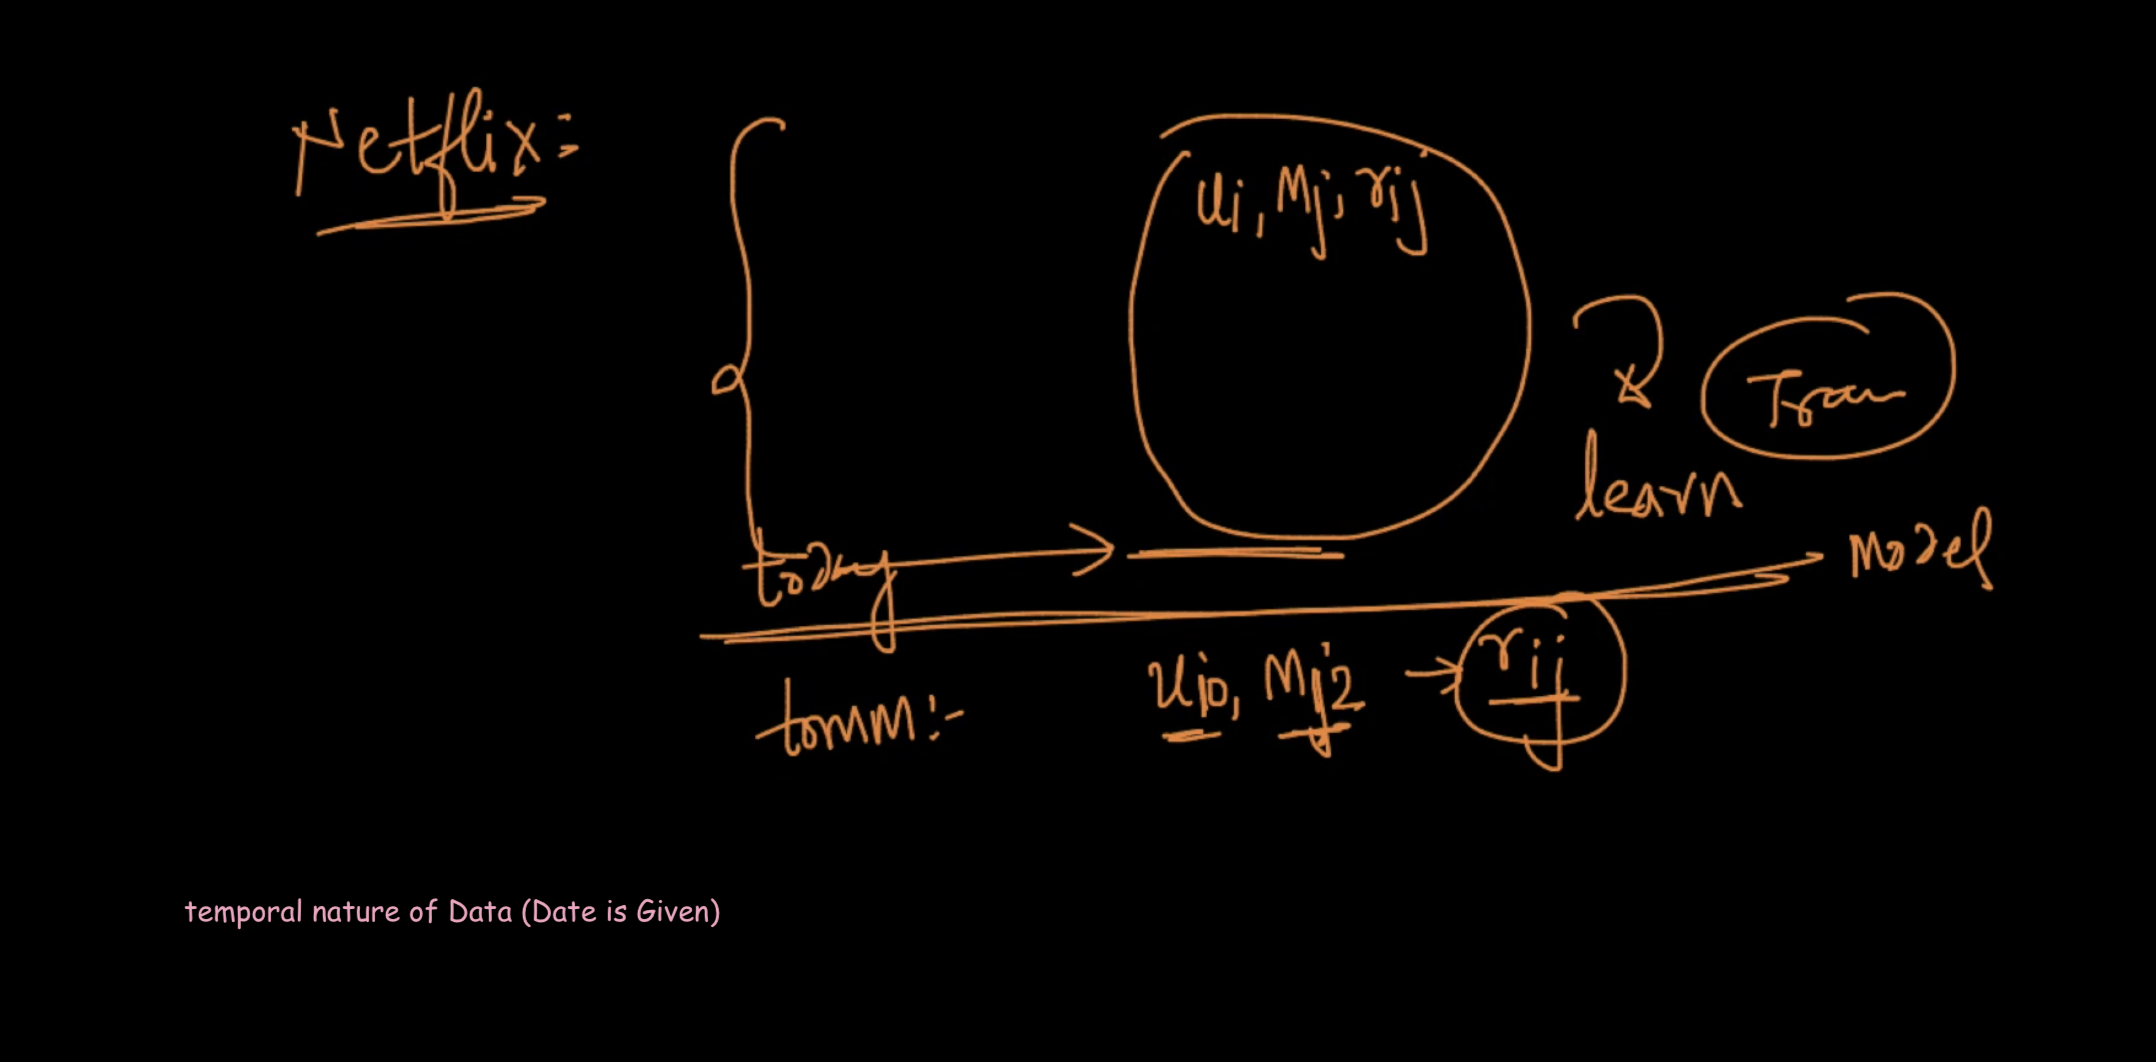 Netflix:
ui, Mj, rij
Train
learn
today
Model
tomm:-
Ui10, Mj2 → rij
temporal nature of Data (Date is Given)